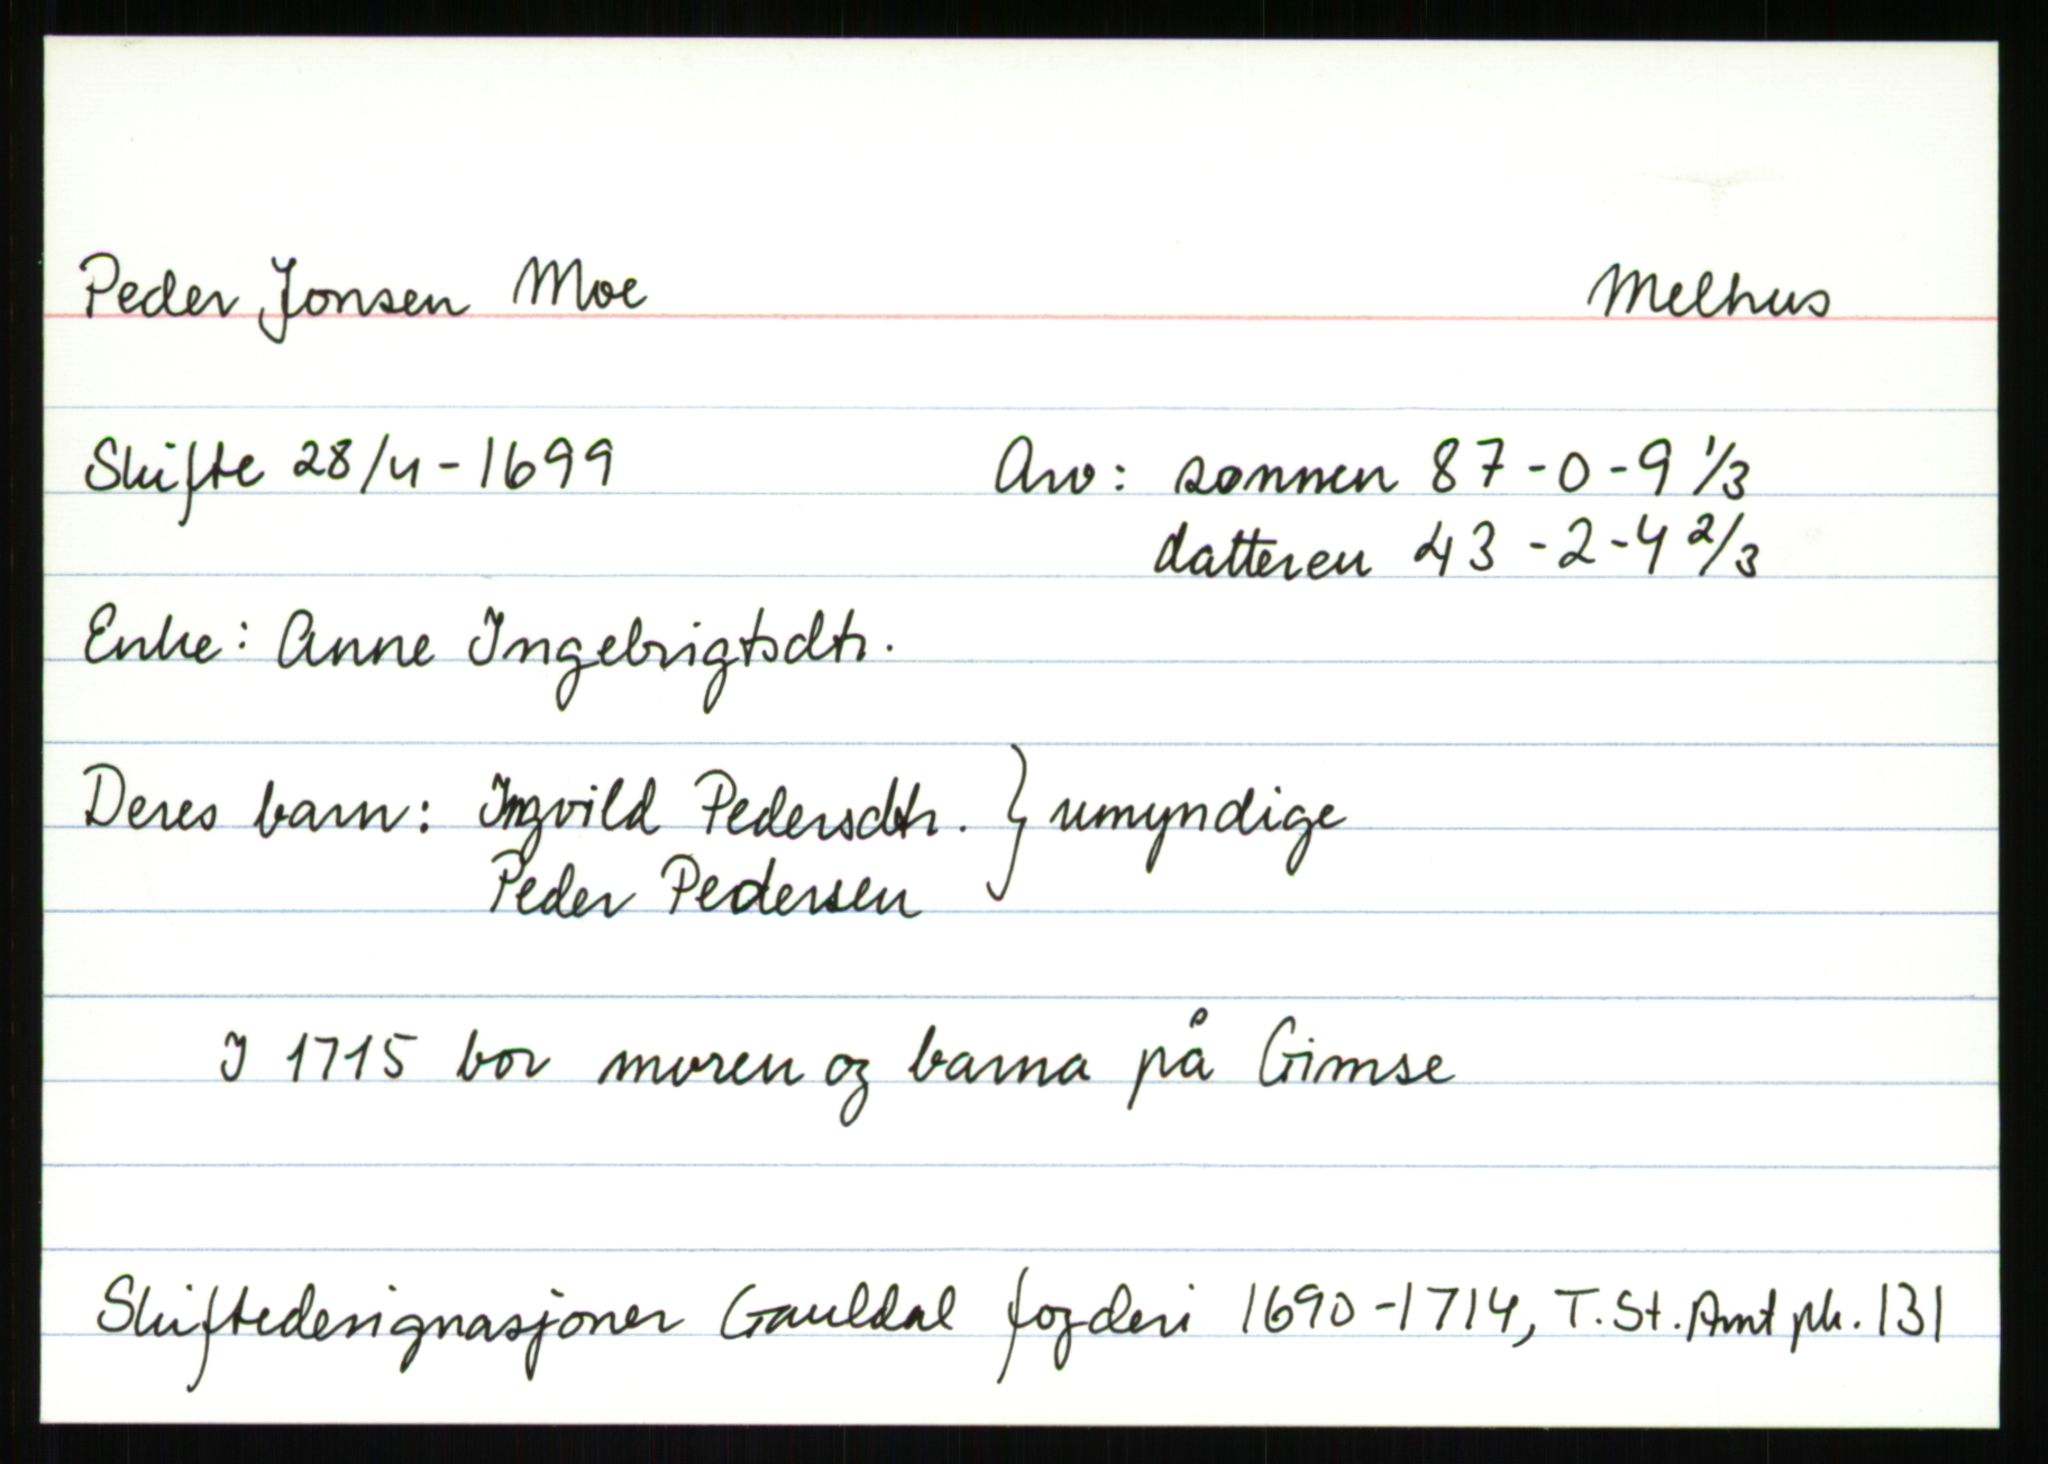 Peder Jonsen Moe Melhus
Skifte 28/4-1699 Arv: sønnen 87-0-9 1/3
datteren 43-2-4 2/3
Enke: Anne Ingebrigtsdtr.
Deres barn: Ingvild Pedersdtr. } umyndige
Peder Pedersen
I 1715 bor moren og barna på Gimse
Skiftedesignasjoner Gauldal fogderi 1690-1714, T.St.Amt pk. 131